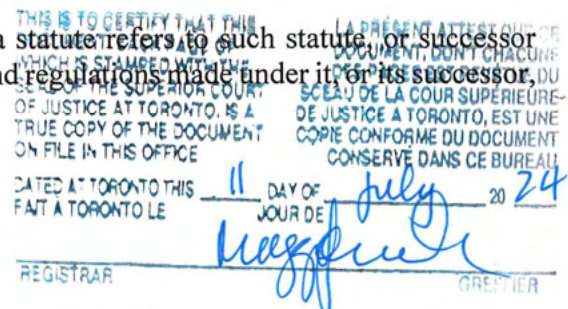 a statute refers to such statute, or successor
nd regulations made under it, or its successor,
THIS IS TO CERTIFY THAT THIS
DOCUMENT, EACH PAGE OF
WHICH IS STAMPED WITH THE
SEAL OF THE SUPERIOR COURT
OF JUSTICE AT TORONTO, IS A
TRUE COPY OF THE DOCUMENT
ON FILE IN THIS OFFICE
LA PRÉSENT ATTEST QUE CE
DOCUMENT, DONT CHACUNE
DU
SCEAU DE LA COUR SUPERIEURE
DE JUSTICE A TORONTO, EST UNE
COPIE CONFORME DU DOCUMENT
CONSERVÉ DANS CE BUREAU
DATED AT TORONTO THIS 11 DAY OF July 20 24
FAIT À TORONTO LE JOUR DE
REGISTRAR GREFFIER